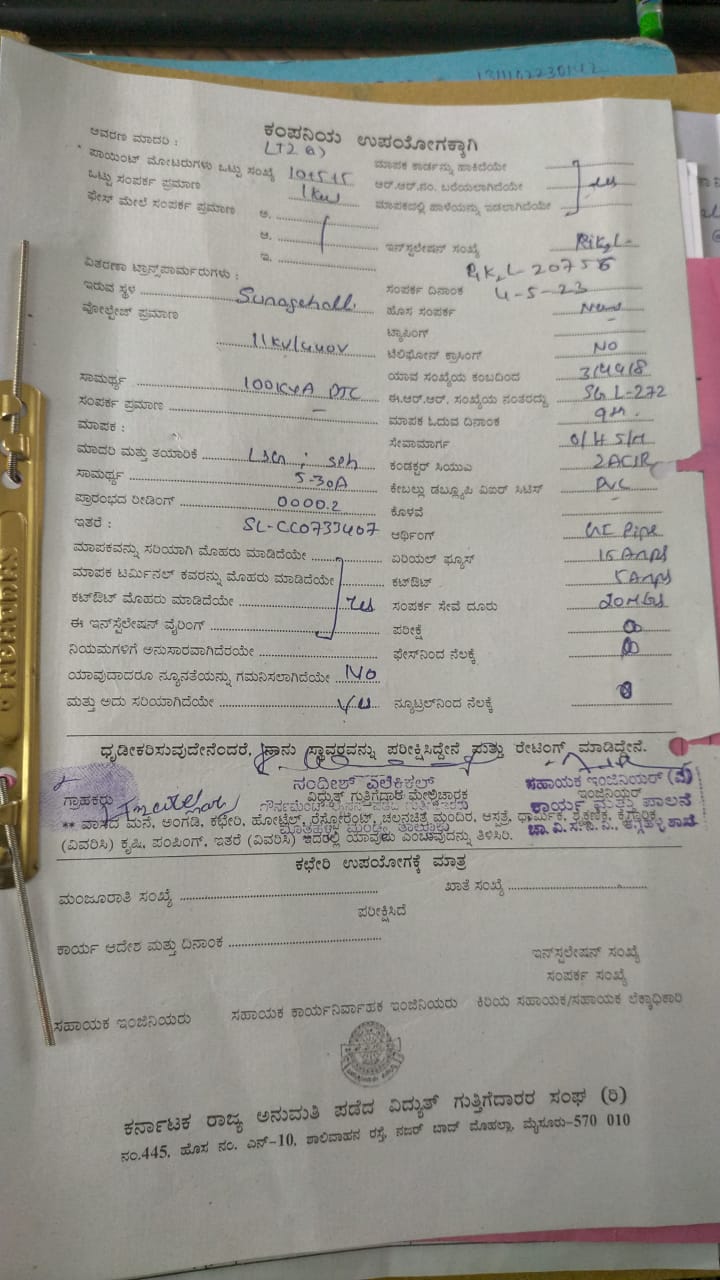 1311102230142
ಕಂಪನಿಯ ಉಪಯೋಗಕ್ಕಾಗಿ
ಆವರಣ ಮಾದರಿ :
ಪಾಯಿಂಟ್ ಮೋಟರುಗಳು ಒಟ್ಟು ಸಂಖ್ಯೆ
ಮಾಪಕ ಕಾರ್ಡನ್ನು ಹಾಕಿದೆಯೇ
ಒಟ್ಟು ಸಂಪರ್ಕ ಪ್ರಮಾಣ 1kw
ಆರ್.ಆರ್.ನಂ. ಬರೆಯಲಾಗಿದೆಯೇ yes
ಫೇಸ್ ಮೇಲೆ ಸಂಪರ್ಕ ಪ್ರಮಾಣ ಅ.
ಮಾಪಕದಲ್ಲಿ ಹಾಳೆಯನ್ನು ಇಡಲಾಗಿದೆಯೇ
ಆ.
ಇ.
ಇನ್‌ಸ್ಟಲೇಷನ್ ಸಂಖ್ಯೆ
20756
ವಿತರಣಾ ಟ್ರಾನ್ಸ್‌ಪಾರ್ಮರುಗಳು :
ಇರುವ ಸ್ಥಳ
ಸಂಪರ್ಕ ದಿನಾಂಕ 4-5-23
ವೋಲ್ಟೇಜ್ ಪ್ರಮಾಣ 11kv/440V
ಹೊಸ ಸಂಪರ್ಕ
ಟ್ಯಾಪಿಂಗ್ -
ಟೆಲಿಫೋನ್ ಕ್ರಾಸಿಂಗ್ NO
ಸಾಮರ್ಥ್ಯ 100KVA DTC
ಯಾವ ಸಂಖ್ಯೆಯ ಕಂಬದಿಂದ
ಸಂಪರ್ಕ ಪ್ರಮಾಣ -
ಈ.ಆರ್.ಆರ್. ಸಂಖ್ಯೆಯ ನಂತರದ್ದು L-272
ಮಾಪಕ :
ಮಾಪಕ ಓದುವ ದಿನಾಂಕ
ಮಾದರಿ ಮತ್ತು ತಯಾರಿಕೆ
ಸೇವಾಮಾರ್ಗ O/H S/M
ಸಾಮರ್ಥ್ಯ 5-30A
ಕಂಡಕ್ಟರ್ ಸಿಯುಎ
ಪ್ರಾರಂಭದ ರೀಡಿಂಗ್ 0000.2
ಕೇಬಲ್ಲು ಡಬ್ಲ್ಯೂಪಿ ವಿಐರ್ ಸಿಟಿಸ್ PVC
ಇತರೆ : SL-CC0733407
ಕೊಳವೆ -
ಆರ್ಥಿಂಗ್ GI Pipe
ಮಾಪಕವನ್ನು ಸರಿಯಾಗಿ ಮೊಹರು ಮಾಡಿದೆಯೇ
ಏರಿಯಲ್ ಫ್ಯೂಸ್ 15 Amps
ಮಾಪಕ ಟರ್ಮಿನಲ್ ಕವರನ್ನು ಮೊಹರು ಮಾಡಿದೆಯೇ
ಕಟ್‌ಔಟ್ 5 Amps
ಕಟ್‌ಔಟ್ ಮೊಹರು ಮಾಡಿದೆಯೇ Yes
ಸಂಪರ್ಕ ಸೇವೆ ದೂರು
ಈ ಇನ್‌ಸ್ಟಲೇಷನ್ ವೈರಿಂಗ್
ಪರೀಕ್ಷೆ
ನಿಯಮಗಳಿಗೆ ಅನುಸಾರವಾಗಿದೆರಯೇ
ಫೇಸ್‌ನಿಂದ ನೆಲಕ್ಕೆ
ಯಾವುದಾದರೂ ನ್ಯೂನತೆಯನ್ನು ಗಮನಿಸಲಾಗಿದೆಯೇ NO
ಮತ್ತು ಅದು ಸರಿಯಾಗಿದೆಯೇ Yes
ನ್ಯೂಟ್ರಲ್‌ನಿಂದ ನೆಲಕ್ಕೆ
ಧೃಡೀಕರಿಸುವುದೇನೆಂದರೆ, ನಾನು ಸ್ಥಾವರವನ್ನು ಪರೀಕ್ಷಿಸಿದ್ದೇನೆ ಮತ್ತು ರೇಟಿಂಗ್ ಮಾಡಿದ್ದೇನೆ.
ಸಹಾಯಕ ಇಂಜಿನಿಯರ್ (ವಿ)
ಗ್ರಾಹಕರು
ವಿದ್ಯುತ್ ಗುತ್ತಿಗೆದಾರ ಮೇಲ್ವಿಚಾರಕ
ಇಂಜಿನಿಯರ್
ಕಾರ್ಯ ಮತ್ತು ಪಾಲನೆ
** ವಾಸದ ಮನೆ, ಅಂಗಡಿ, ಕಛೇರಿ, ಹೋಟೆಲ್, ರೆಸ್ಟೋರೆಂಟ್, ಚಲನಚಿತ್ರ ಮಂದಿರ, ಆಸ್ಪತ್ರೆ, ಧಾರ್ಮಿಕ, ಶೈಕ್ಷಣಿಕ, ಕೈಗಾರಿಕ
(ವಿವರಿಸಿ) ಕೃಷಿ, ಪಂಪಿಂಗ್, ಇತರೆ (ವಿವರಿಸಿ) ಇದರಲ್ಲಿ ಯಾವುದು ಎಂಬುವುದನ್ನು ತಿಳಿಸಿರಿ.
ಕಛೇರಿ ಉಪಯೋಗಕ್ಕೆ ಮಾತ್ರ
ಮಂಜೂರಾತಿ ಸಂಖ್ಯೆ
ಖಾತೆ ಸಂಖ್ಯೆ
ಪರೀಕ್ಷಿಸಿದೆ
ಕಾರ್ಯ ಆದೇಶ ಮತ್ತು ದಿನಾಂಕ
ಇನ್‌ಸ್ಟಲೇಷನ್ ಸಂಖ್ಯೆ
ಸಂಪರ್ಕ ಸಂಖ್ಯೆ
ಸಹಾಯಕ ಇಂಜಿನಿಯರು ಸಹಾಯಕ ಕಾರ್ಯನಿರ್ವಾಹಕ ಇಂಜಿನಿಯರು ಕಿರಿಯ ಸಹಾಯಕ/ಸಹಾಯಕ ಲೆಕ್ಕಾಧಿಕಾರಿ
ಕರ್ನಾಟಕ ರಾಜ್ಯ ಅನುಮತಿ ಪಡೆದ ವಿದ್ಯುತ್ ಗುತ್ತಿಗೆದಾರರ ಸಂಘ (ರಿ)
ನಂ.445, ಹೊಸ ನಂ. ಎನ್-10, ಶಾಲಿವಾಹನ ರಸ್ತೆ, ನಜರ್ ಬಾದ್ ಮೊಹಲ್ಲಾ, ಮೈಸೂರು-570 010